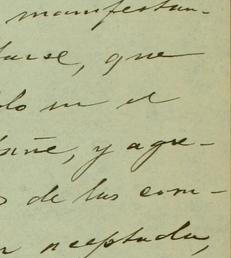 manifestan-
tarse, que
olo en el
siñe, y agre-
o de las com-
n aceptada,